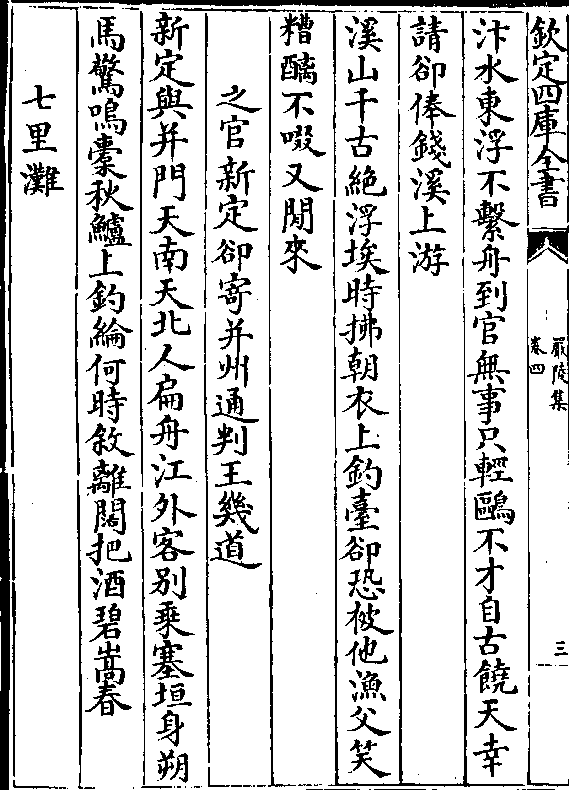 欽定四庫全書
嚴陵集
卷四
三
汴水東浮不繫舟到官無事只輕鷗不才自古饒天幸
請卻俸錢溪上游
溪山千古絶浮埃時拂朝衣上釣臺卻恐被他漁父笑
糟醨不啜又閒來
之官新定卻寄并州通判王幾道
新定與并門天南天北人扁舟江外客别乗塞垣身朔
馬驚鳴橐秋鱸上釣綸何時敘離闊把酒碧嵩春
七里灘